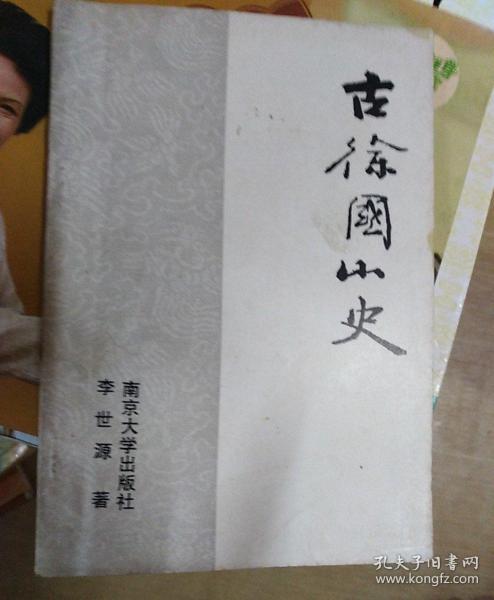 古徐國小史
南京大学出版社
李世源 著
孔夫子旧书网
www.kongfz.com